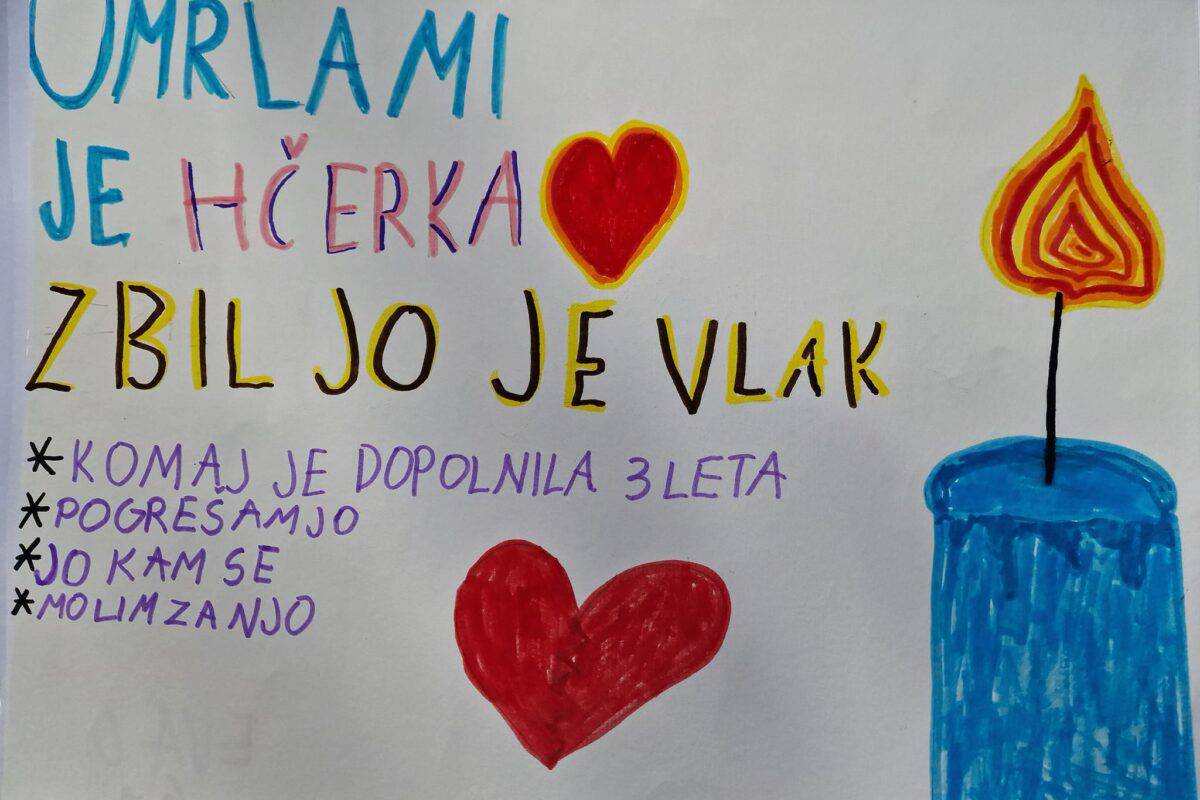 UMRLA MI
JE HČERKA
ZBIL JO JE VLAK
*KOMAJ JE DOPOLNILA 3 LETA
*POGREŠAM JO
*JO KAM SE
*MOLIM ZA NJO